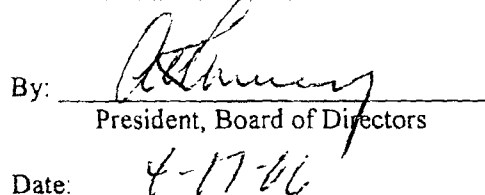 By:
President, Board of Directors
Date: 4-17-06